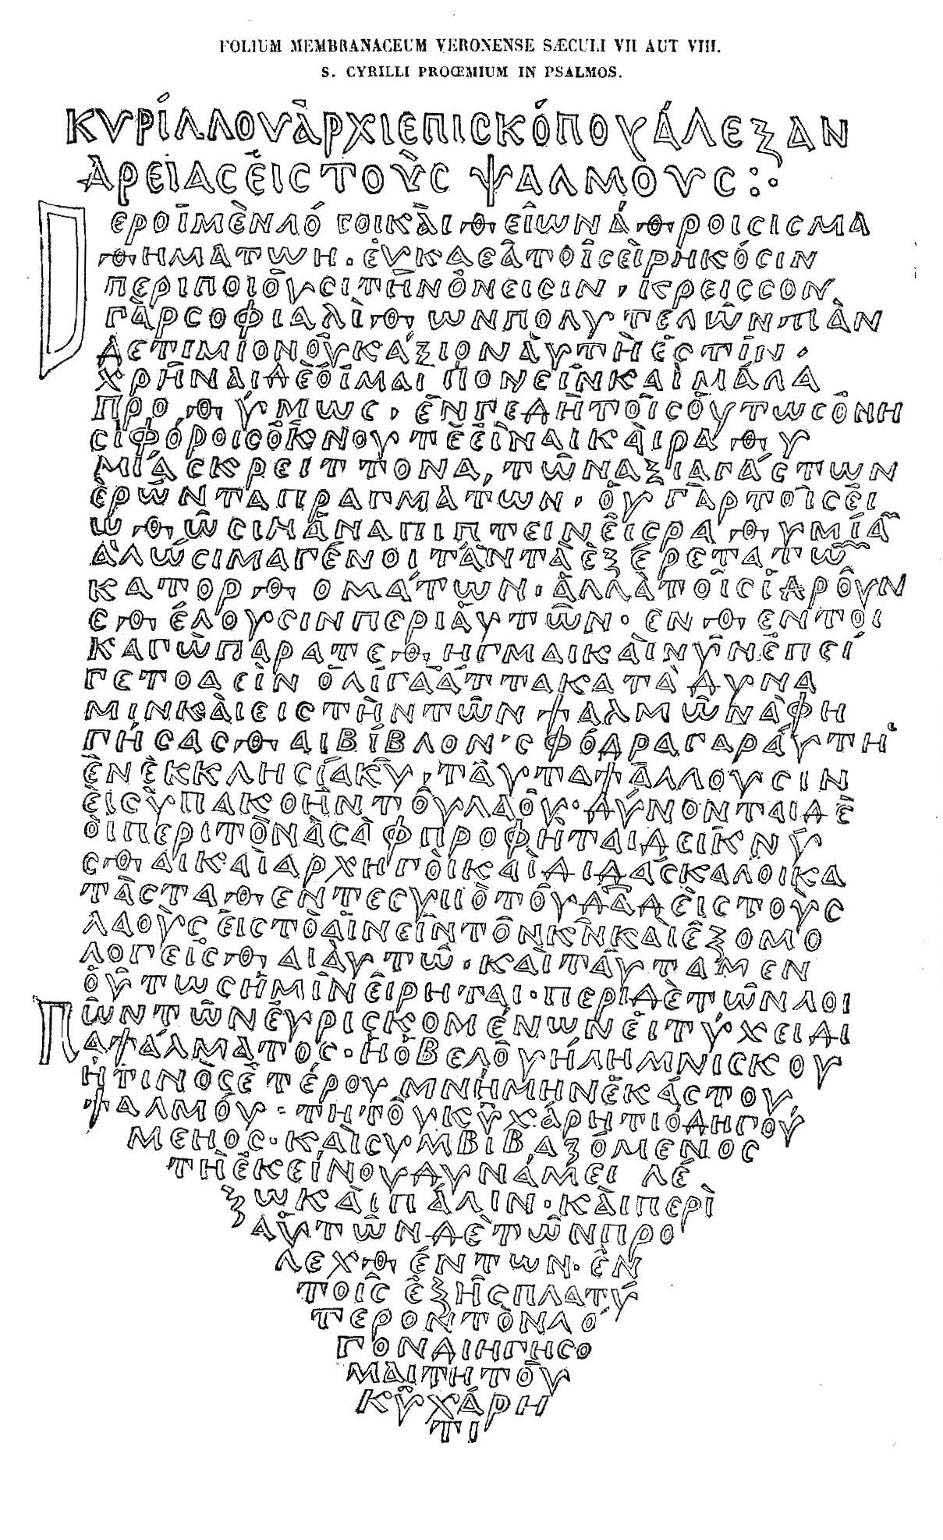 FOLIUM MEMBRANACEUM VERONENSE SÆCULI VII AUT VIII.
S. CYRILLI PROŒMIUM IN PSALMOS.
ΚΥΡΊΛΛΟΥ ᾺΡΧΙΕΠΙΣΚΌΠΟΥ ΆΛΕΞΑΝ
ΔΡΕΊΑΣ ΕἸΣ ΤΟῪΣ ΨΑΛΜΟΥΣ:·
ΙΕΡΟῚ ΜῈΝ ΛΌΓΟΙ ΚᾺΙ ΘΕῖΩΝ ΆΘΡΟΙΣΙΣ ΜΑ
ΘΗΜΆΤΩΝ. ἘΥΚΛΕᾶ ΤΟῖΣ ΕἸΡΗΚΌΣΙΝ
ΠΕΡΙΠΟΙΟῦΣΙ ΤῊΝ ὌΝΗΣΙΝ, ΚΡΕΙΣΣΟΝ
ΓᾺΡ ΣΟΦΙΑ ΛΙΘΩΝ ΠΟΛΥΤΕΛῶΝ ΠᾺΝ
ΔΕ ΤΙΜΙΟΝ ΟὐΚ ΑΞΙΟΝ ΑΥΤῊΣ ἘΣΤΊΝ.
ΧΡῆΝΑΙ ΔΕ ΟἶΜΑΙ ΠΟΝΕῖΝ ΚΑῚ ΜΆΛΑ
ΠΡΟΘΎΜΩΣ, ἘΝΓΕ ΔῊ ΤΟῖΣ ΟὝΤΩΣ ὈΝΗ
ΣΙΦΌΡΟΙΣ ὈΚΝΟΥ ΤΕ ΕἾΝΑΙ ΚΑῚ ΡΑΘΥ
ΜΙΆΣ ΚΡΕΙΤΤΟΝΑ, ΤῶΝ ΑΞΙΑΓΆΣΤΩΝ
ἘΡῶΝΤΑ ΠΡΑΓΜΆΤΩΝ, ΟὐΓᾺΡ ΤΟῖΣ ΕἸ
ΩΘΟΣΙΝ ἈΝΑΠΙΠΤΕΙΝ ΕἸΣ ΡΑΘΥΜΊΑΝ
ΑΛΩΣΙΜΑ ΓΈΝΟΙΤ ἈΝ ΤᾺ ἘΞΈΡΕΤΑ ΤῶΝ
ΚΑΤΟΡΘΟΜΆΤΩΝ. ἈΛΛᾺ ΤΟῖΣ ΙΔΡΟῦΝ
ΕΘΈΛΟΥΣΙΝ ΠΕΡΙ ἈΥΤῶΝ. ΕΝΘΕΝ ΤΟΙ
ΚΑΓῺ ΠΑΡΑΤΕΘΗΓΜΑΙ ΚΑῚ ΝῦΝ ἘΠΕΊ
ΓΕΤΟ ΔΕῖΝ ὈΛΊΓΑ ἈΤΤΑ ΚΑΤᾺ ΔΥΝΑ
ΜΙΝ ΚᾺΙ ΕΙΣ ΤῊΝ ΤῶΝ ΨΑΛΜῶΝ ἈΦΗ
ΓΉΣΑΣΘΑΙ ΒΊΒΛΟΝ· ΣΦΌΔΡΑ ΓΑΡ ἈΥΤῊ
ἘΝ ἘΚΚΛΗΣΊΑ ΚΥ, ΤΑΥΤΑ ΨΆΛΛΟΥΣΙΝ
ἘΙΣ ὙΠΑΚΟῊΝ ΤΟῦ ΛΑΟῦ· ΔΎΝΟΝΤΑΙ ΔῈ
ὈΙ ΠΕΡΙ ΤῸΝ ἈΣᾺΦ ΠΡΟΦῊΤΑΙ ΔΕΙΚΝΎ
ΕΣΘΑΙ ΚΑῚ ΑΡΧΗΓΌΙ ΚΑῚ ΔΙΔΆΣΚΑΛΟΙ ΚΑ
ΤᾺΣΤΑΘΕΝΤΕΣ ΥΠὸ ΤΟῦ ΔΑΔ ἘΙΣ ΤΟῪΣ
ΛΑΟῪΣ ἘΙΣ ΤῸ ΑἸΝΕῖΝ ΤῸΝ ΚΝ ΚΑῚ ἘΞΟΜΟ
ΛΟΓΕῖΣΘΑΙ ἈΥΤῶ. ΚΑῚ ΤΑΥΤΑ ΜΕΝ
ὉΥΤΩΣ ἩΜῖΝ ΕἸΡΗΤΑΙ. ΠΕΡΙ ΔῈ ΤῶΝ ΛΟΙ
ΠῶΝ ΤῶΝ ἘΥΡΙΣΚΟΜΈΝΩΝ ΕἸ ΤΎΧΕΙ ΔΙ
ΑΨΆΛΜΑΤΟΣ. Ἢ ὈΒΕΛΟῦ Ἢ ΛΗΜΝΙΣΚΟΥ
Ἢ ΤΙΝῸΣ ἘΤΈΡΟΥ ΜΝΗΜΗΝ ἙΚΆΣΤΟΥ
ΨΑΛΜΟῦ· ΤΗ ΤΟῦ ΚΥ ΧΆΡΗΤΙ ὉΔΗΓΟΎ
ΜΕΝΟΣ· ΚΑῚ ΣΥΜΒΙΒΑΖΌΜΕΝΟΣ
ΤΗ ἘΚΕΊΝΟΥ ΔΥΝΆΜΕΙ ΛΈ
ΞΩ ΚΑῚ ΠΆΛΙΝ. ΚᾺΙ ΠΕΡῚ
ΑΥΤῶΝ ΔῈ ΤῶΝ ΠΡΟ
ΛΕΧΘΈΝΤΩΝ. ἘΝ
ΤΟΙΣ ἙΞΗΣ ΠΛΑΤΎ
ΤΕΡΟΝ ΤῸΝ ΛΌ
ΓΟΝ ΔΙΗΓΗΣΟ
ΜΑΙ ΤΗ ΤΟῦ
ΚΥ ΧΆΡΗ
ΤΙ